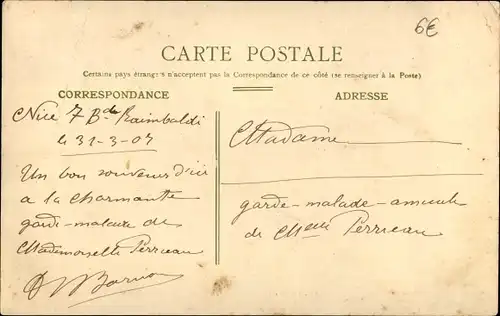 6€
CARTE POSTALE
Certains pays étrangers n'acceptent pas la Correspondance de ce côté (se renseigner à la Poste)
CORRESPONDANCE
Nice 7 Bd Raimbaldi
le 31-3-07
Un bon souvenir d'ici
a la charmante
garde-malade de
Mademoiselle Perrieau
ADRESSE
Madame
garde-malade-amicale
de Melle Perrieau